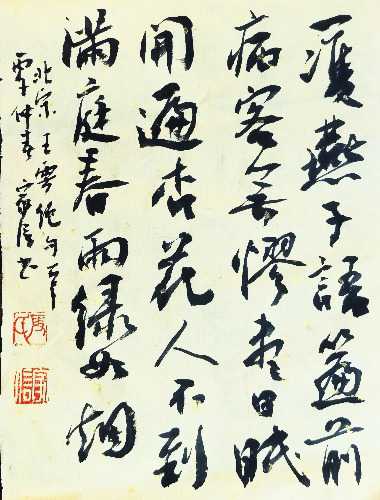 一雙燕子語簾前
病客無憀盡日眠
開遍杏花人不到
滿庭春雨綠如烟
北宋王雱绝句
仲春
书